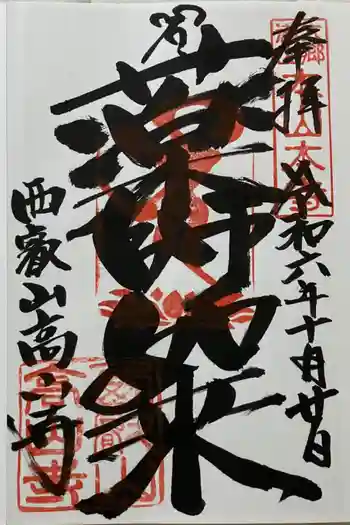 奉拝
令和六年十月廿日
薬師如来
西叡山高山寺
高山寺